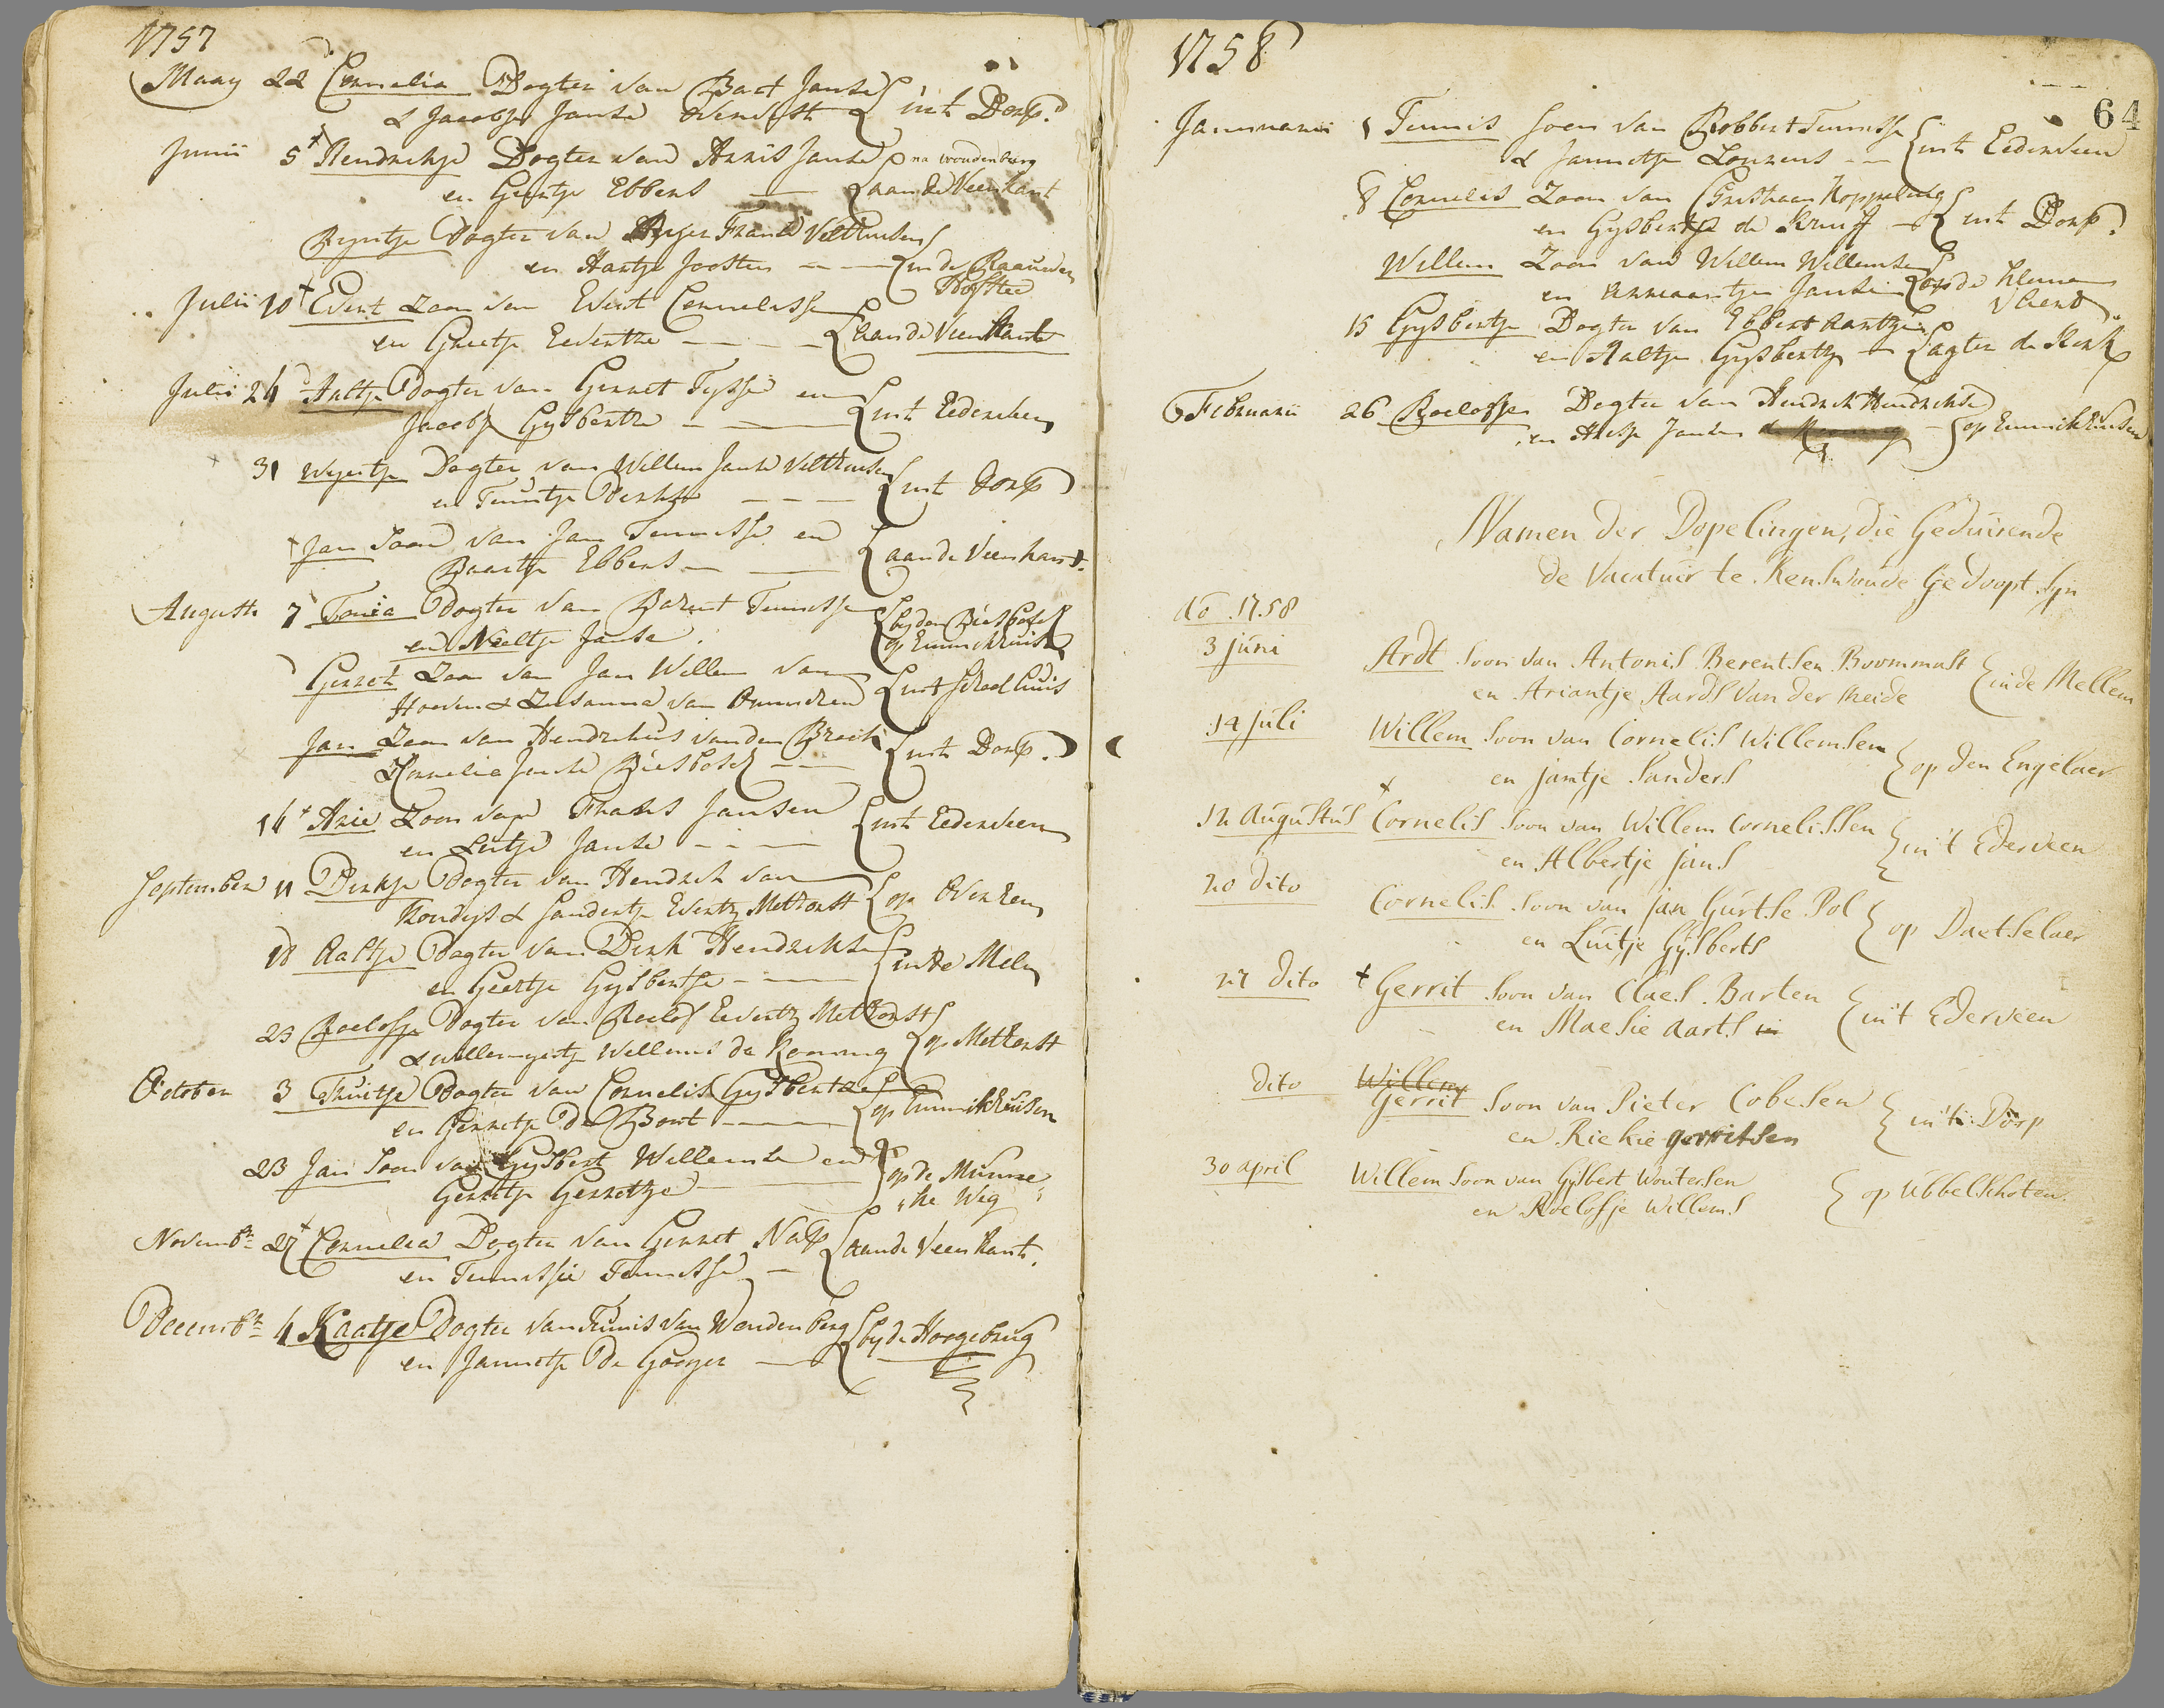 1757
Maay 22 Cornelia Dogter van Bart Janse
& Jacobje Janse Overvest int Dorp.
Junii 5 Hendrickje Dogter van Arris Janse na woudenburg
en Geertje Ebbers aan de Veenkant
Ryntje Dogter van Frans Velthuisen
en Hartje Joosten in de Raauwen
Hofstee
Julii 10 Evert Zoon van Evert Cornelisse
en Grietje Evertze aan de Veenkant
Julii 24 Aaltje Dogter van Gerret Tysse en
Jacobje Gysbertze int Ederveen
31 Weyertje Dogter van Willem Janse Velthuisen
en Teuntje Derkse int Dorp
Jan Soon van Jan Teunisse en
Baartje Ebbers aan de Veenkant.
Augusti 7 Tonia Dogter van Barent Teunisse by den Biesbosch
en Neeltje Janse op Emmickhuise
Gerret Zoon van Jan Willem van
Hoeven & Zusanna van Ommeren int Schoolhuis
Jan Zoon van Hendrikus van den Broeck
& Kornelia Janse Biesbosch int Dorp.
14 Arie Zoon van Frans Jansen
en Luitje Janse int Ederveen
September 11 Dirkje Dogter van Hendrik van
Kondys & Sandertje Evertz Methorst op Overeem
18 Aaltje Dogter van Derk Hendrickse
en Geertje Gysbertse in de Melm
23 Roelofje Dogter van Roelof Evertz Methorst
& Willemyntje Willems de Koning op Methorst
October 3 Truitje Dogter van Cornelis Gysbertze
en Gerretje De Bont op Emmikhuisen
23 Jan Soon van Gysbert Willemse en op de Munne
Gerretje Gerretze ke Weg
Novembr 27 Cornelia Dogter van Gerret Nap
en Teunissie Teunisse aan de Veenkant.
Decembr 4 Kaatje Dogter van Teunis van Woudenberg
en Jannetje De Gooyer by de Hoogebrug
1758
64
Januarii 1 Teunis Soon van Robbert Teunisse
& Jannetje Lourens int Ederveen
8 Cornelis Zoon van Cristiaan Koppeling
en Gysbertje de Kruif int Dorp.
Willem Zoon van Willem Willemsen
en Annaantje Jansen op de kleine
15 Gysbertje Dogter van Ebbert Aartzen
en Aaltje Gysbertz agter de Kerk
Februarii 26 Roelofje Dogter van Hendrick Hendrickse
en Aresje Jansen op Emmikhuisen
Namen der Dopelingen, die Geduirende
de Vacatuir te Renswoude Gedoopt Syn
Ao 1758
3 juni Ardt Soon van Antonis Berentsen Boommalt
en Ariantje Aards van der Meide in de Mellem
14 juli Willem Soon van Cornelis Willemsen
en jantje Sanders op den Engelaer
12 Augustus Cornelis Soon van Willem Cornelissen
en Albertje jans in't Ederveen
20 dito Cornelis Soon van jan Gurtse Pol
en Luitje Gijsberts op Daetselaer
27 dito Gerrit Soon van Claes Barten
en Maesie Aarts in in't Ederveen
dito Willem
Gerrit Soon van Pieter Cobesen
en Riekie gerritsen in't Dorp
30 april Willem Soon van Gijsbert Woutersen
en Roelofje Willems op Ubbelschoten